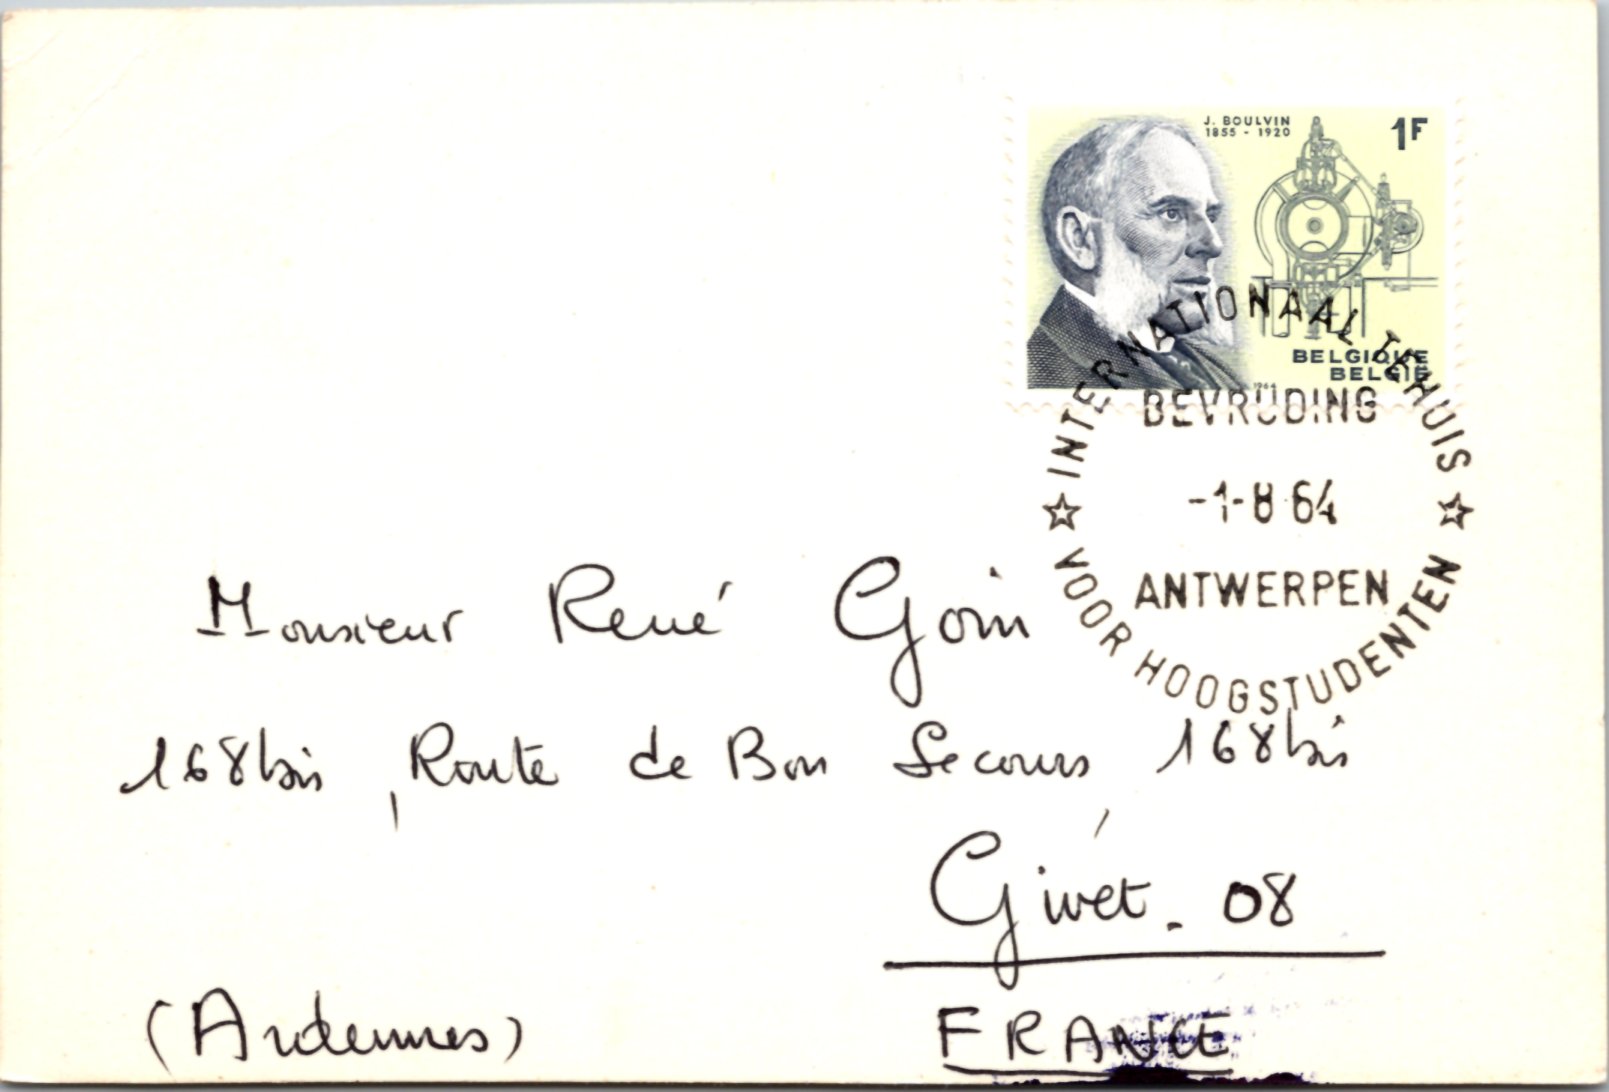 J. BOULVIN
1855 - 1920
1F
BELGIQUE
BELGIË
1964
INTERNATIONAAL TEHUIS
BEVRIJDING
-1-8 64
ANTWERPEN
VOOR HOOGSTUDENTEN
Monsieur René Goin
168bis, Route de Bon Secours, 168bis
Givet - 08
(Ardennes) FRANCE